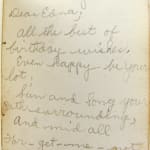 Dear Edna,
all the best of
birthday wishes.
Even happy be your
lot;
Sun and song your
path surrounding,
and mid all
For-get-me-not